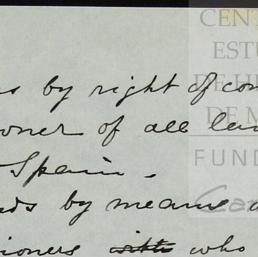 by right of con
oner of all la
Spain.
ds by means
ioners with who
CEN
ESTU
DE H
DE M
FUND